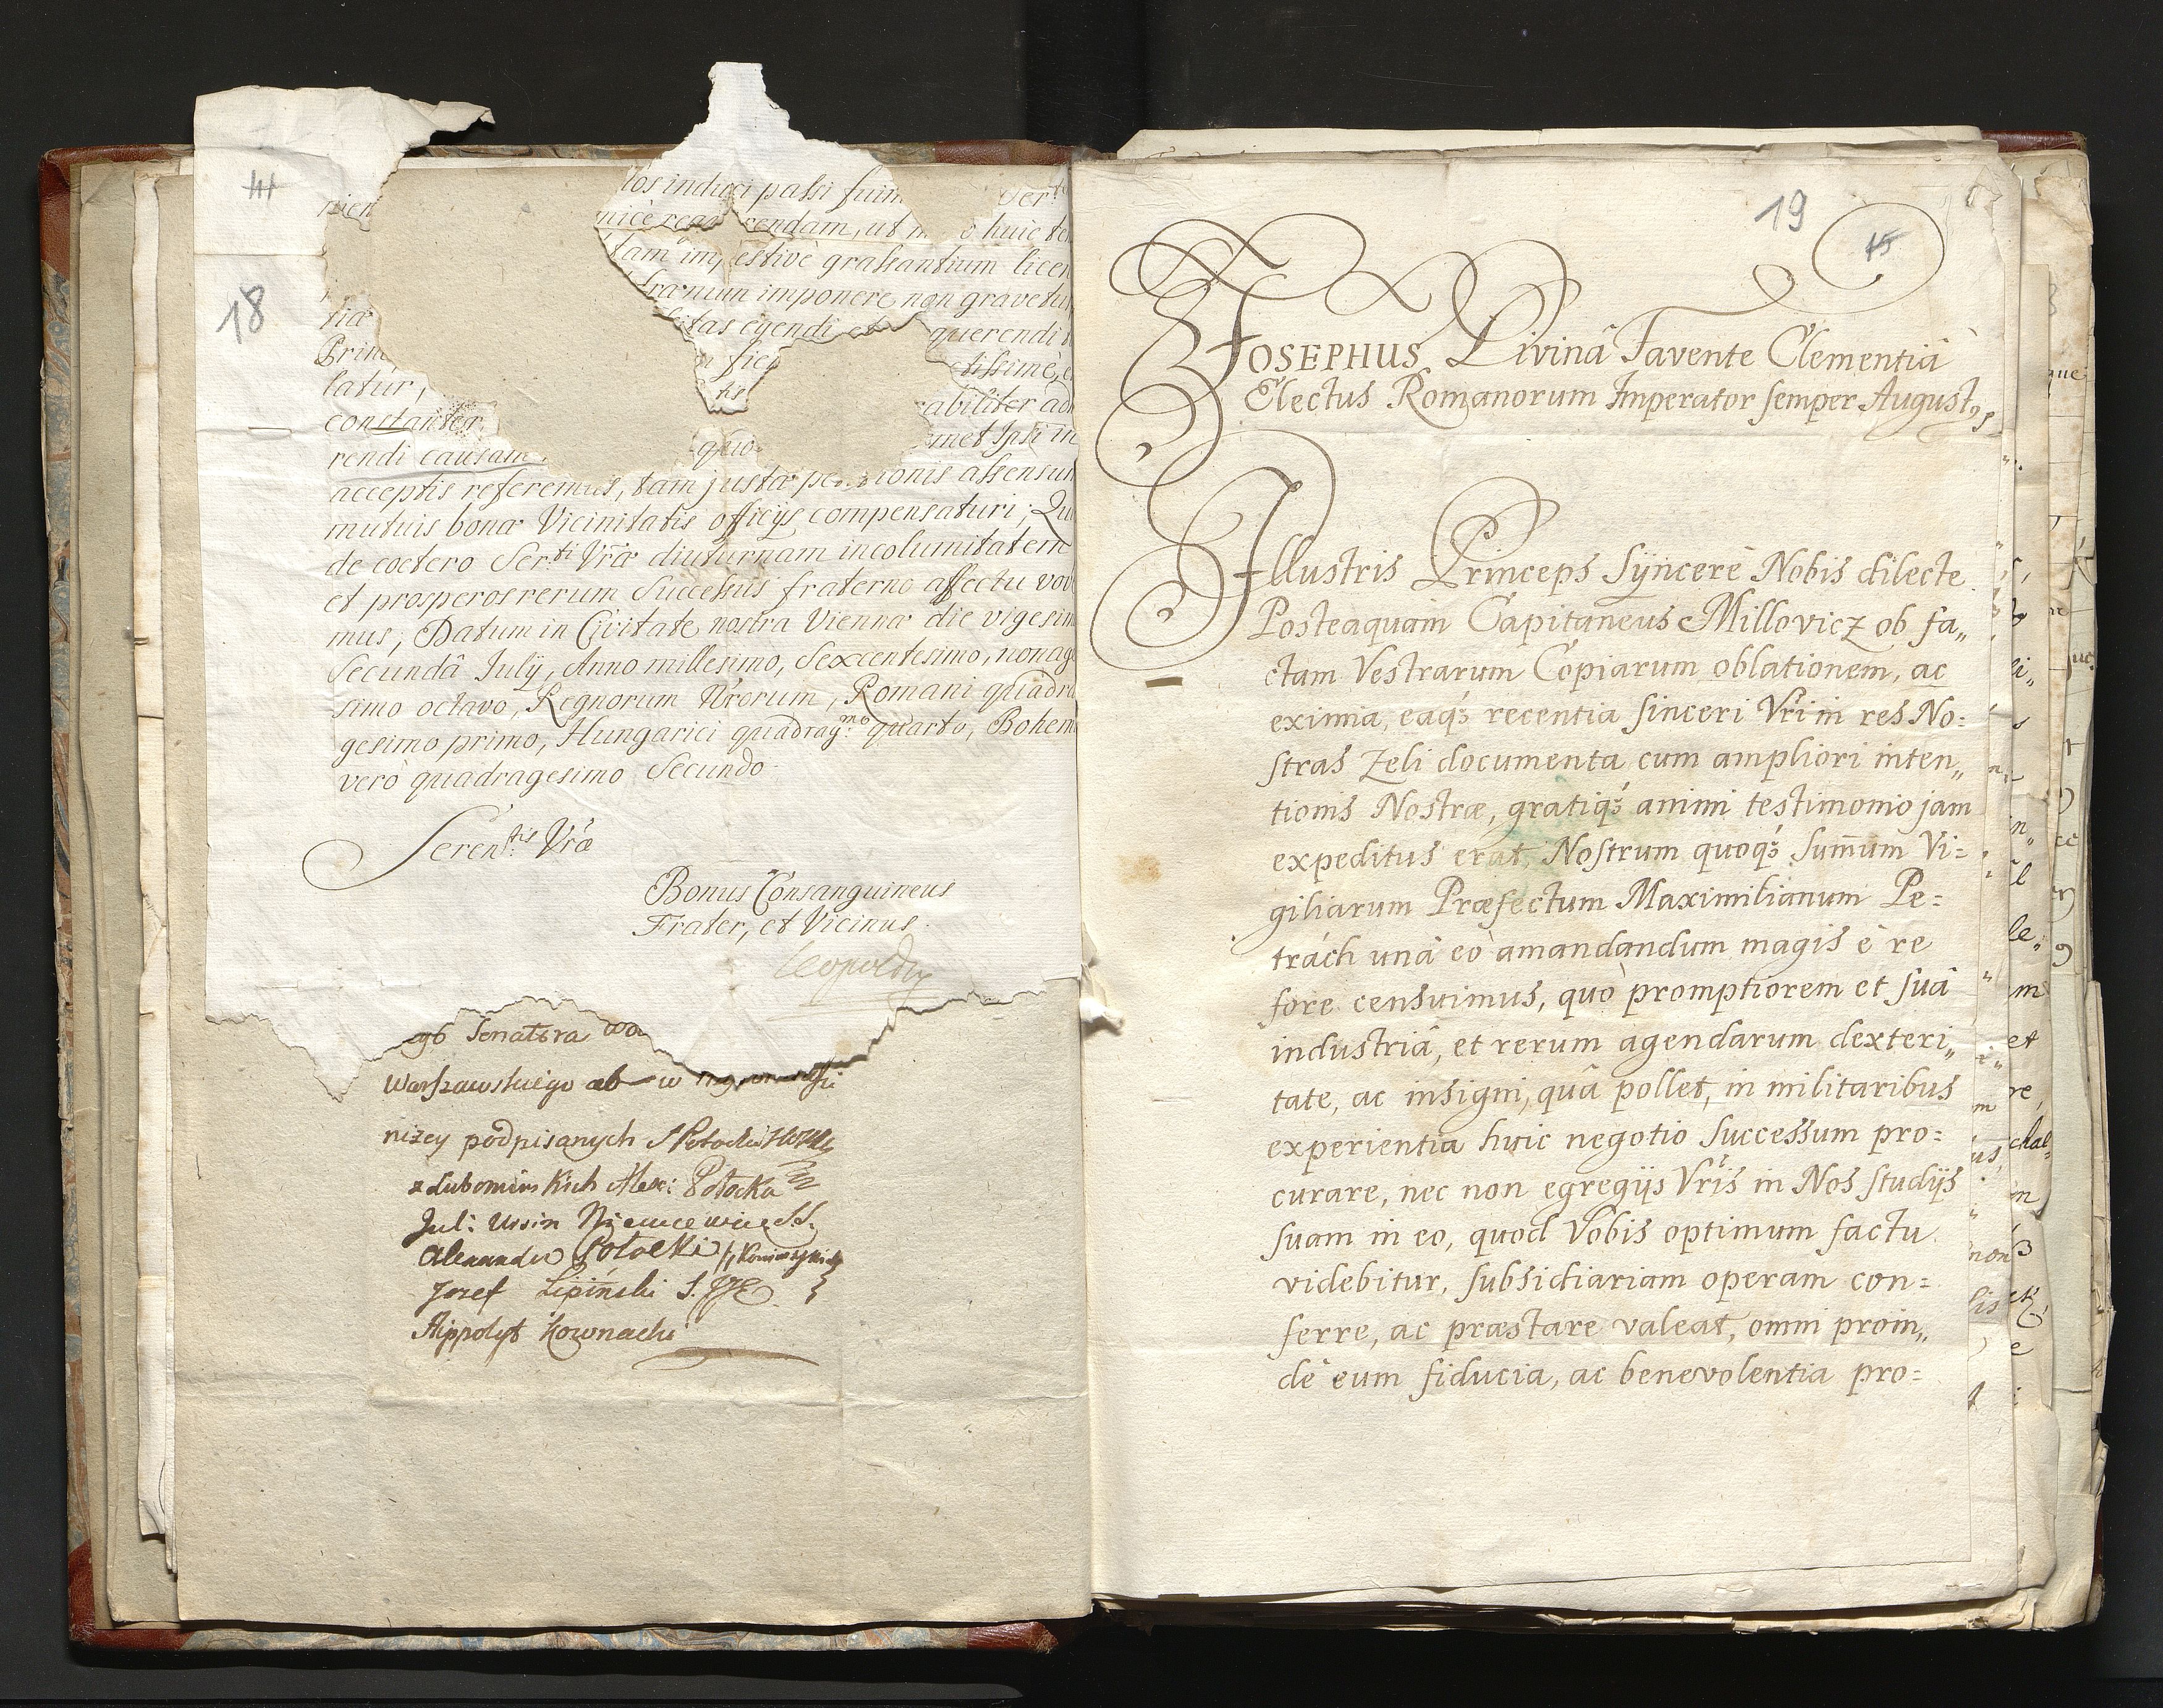 18
nien
tiæ
Prin
latur,
constanter
rendi causam
los induci passi fuim
Ser
nicè
rendam, ut
huic te
tam
estivè grassantium licen
frænum imponere non gravetur
itas egendi et
querendi
tissimè, e
abiliter ad
quo
met Ipsi in
acceptis referemus, tam justæ pe ionis assensum
mutuis bonæ Vicinitatis officijs compensaturi; Qui
de coetero Ser.ti Vræ diuturnam incolumitatem
et prosperos rerum Successus fraterno affectu vove
mus, Datum in Civitate nostra Viennæ die vigesim
Secundâ Julij, Anno millesimo, Sexcentesimo, nonage
simo octavo, Regnorum Nrorum, Romani quadra
gesimo primo, Hungarici quadrag.mo quarto, Bohem
verò quadragesimo Secundo.
Seren.tis Vræ
Bonus Consanguineus
Frater, et Vicinus.
Leopoldus
ego Senatora wo
Warszawskiego ab w
niżey podpisanych S Potocki
z Lubomirskich Alex: Potocka
Jul: Ursin Niemcewicz
Alexander Potocki
Jozef Lipiński
Hippolyt Kownacki
19
15
JOSEPHUS Divinâ Favente Clementiâ
Electus Romanorum Imperator semper Augustus
Illustris Princeps Sÿncerè Nobis dilecte
Posteaquam Capitaneus Millovicz ob fa„
ctam Vestrarum Copiarum oblationem, ac
eximia, eaq́3 recentia sinceri Vr̃i in res No=
stras zeli documenta cum ampliori inten„
tionis Nostræ, gratiq́3 animi testimonio jam
expeditus erat, Nostrum quoq́3 Sum̄um Vi=
giliarum Præfectum Maximilianum Pe=
trách unâ eò amandandum magis è re
fore censuimus, quò promptiorem et suâ
industriâ, et rerum agendarum dexteri„
tate, ac insigni, quâ pollet, in militaribus
experientia huic negotio successum pro=
curare, nec non egregijs Vr̃is in Nos studijs
suam in eo, quod Vobis optimum factu
videbitur, subsidiariam operam con=
ferre, ac præstare valeat, omni proin„
dè eum fiducia, ac benevolentia pro=